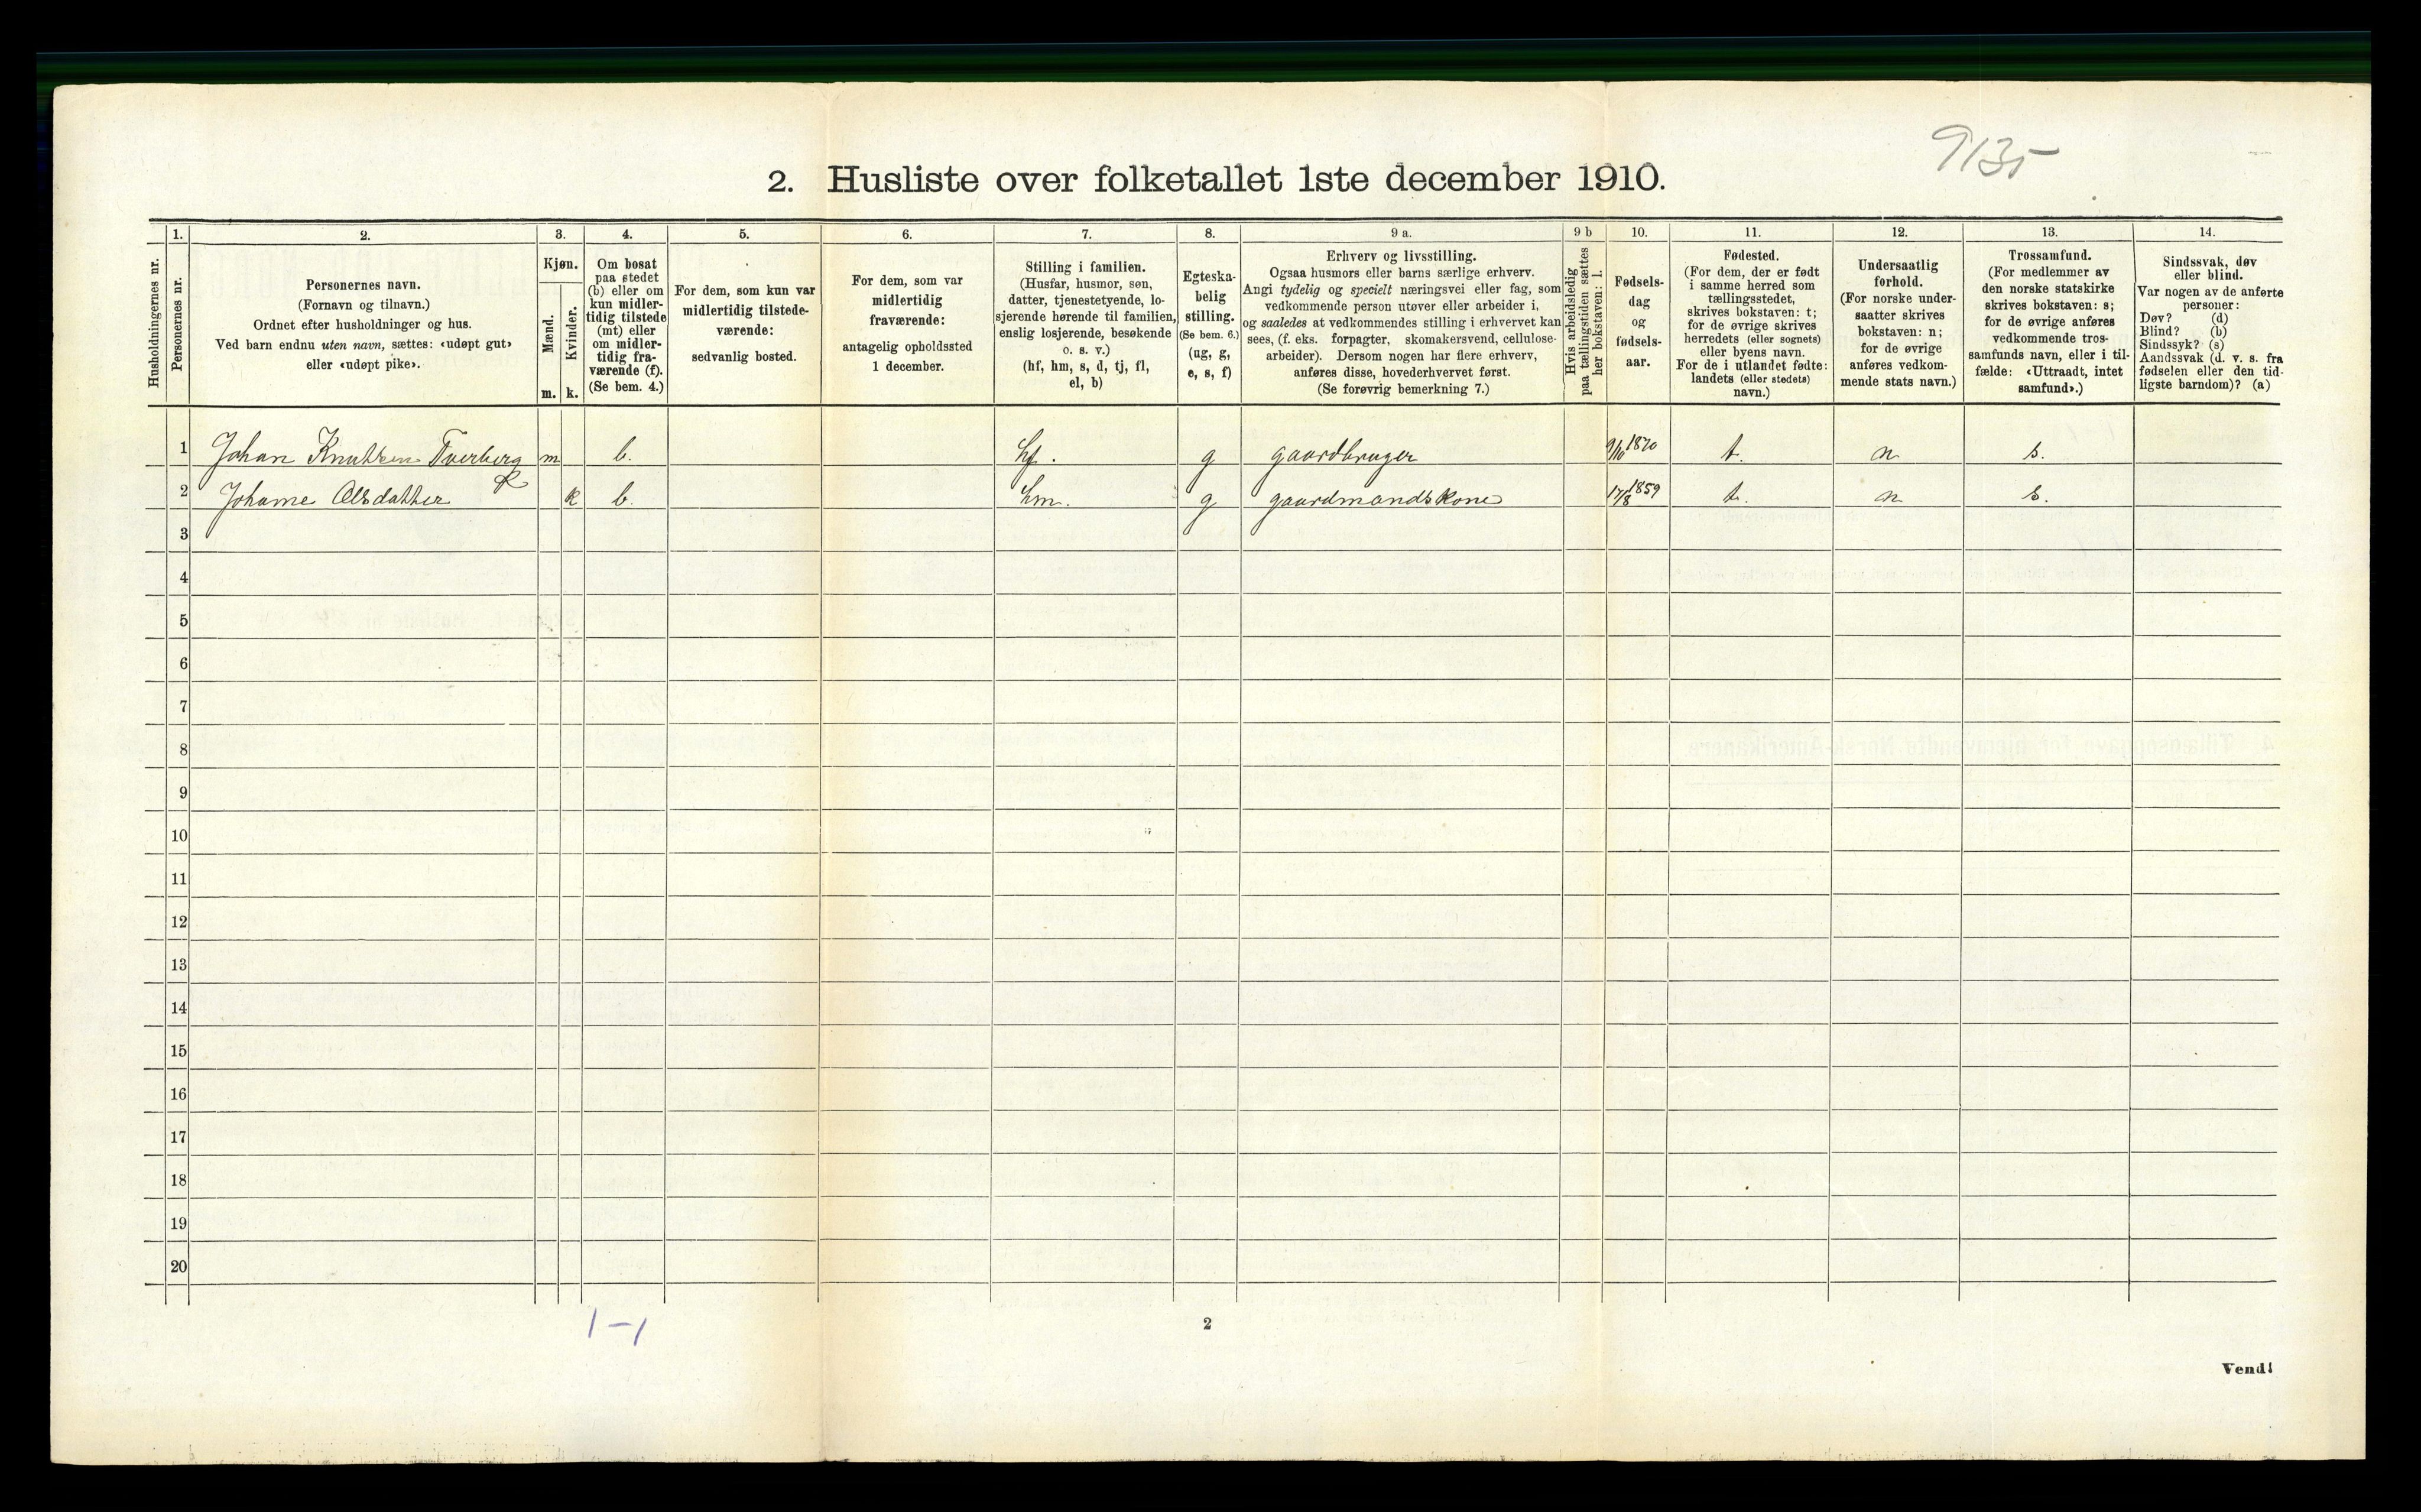 9135
2. Husliste over folketallet 1ste december 1910.
Husholdningernes nr.
1.
Personernes nr.
2.
Personernes navn.
(Fornavn og tilnavn.)
Ordnet efter husholdninger og hus.
Ved barn endnu uten navn, sættes: «udøpt gut»
eller «udøpt pike».
3.
Kjøn.
Mænd.
Kvinder.
m. k.
4.
Om bosat
paa stedet
(b) eller om
kun midler-
tidig tilstede
(mt) eller
om midler-
tidig fra-
værende (f).
(Se bem. 4.)
5.
For dem, som kun var
midlertidig tilstede-
værende:
sedvanlig bosted.
6.
For dem, som var
midlertidig
fraværende:
antagelig opholdssted
1 december.
7.
Stilling i familien.
(Husfar, husmor, søn,
datter, tjenestetyende, lo-
sjerende hørende til familien,
enslig losjerende, besøkende
o. s. v.)
(hf, hm, s, d, tj, fl,
el, b)
8.
Egteska-
belig
stilling.
(Se bem. 6.)
(ug, g,
e, s, f)
9 a.
Erhverv og livsstilling.
Ogsaa husmors eller barns særlige erhverv.
Angi tydelig og specielt næringsvei eller fag, som
vedkommende person utøver eller arbeider i,
og saaledes at vedkommendes stilling i erhvervet kan
sees, (f. eks. forpagter, skomakersvend, cellulose-
arbeider). Dersom nogen har flere erhverv,
anføres disse, hovederhvervet først.
(Se forøvrig bemerkning 7.)
9 b
Hvis arbeidsledig
paa tællingstiden sættes
her bokstaven: l.
10.
Fødsels-
dag
og
fødsels-
aar.
11.
Fødested.
(For dem, der er født
i samme herred som
tællingsstedet,
skrives bokstaven: t;
for de øvrige skrives
herredets (eller sognets)
eller byens navn.
For de i utlandet fødte:
landets (eller stedets)
navn.)
12.
Undersaatlig
forhold.
(For norske under-
saatter skrives
bokstaven: n;
for de øvrige
anføres vedkom-
mende stats navn.)
13.
Trossamfund.
(For medlemmer av
den norske statskirke
skrives bokstaven: s;
for de øvrige anføres
vedkommende tros-
samfunds navn, eller i til-
fælde: «Uttraadt, intet
samfund».)
14.
Sindssvak, døv
eller blind.
Var nogen av de anførte
personer:
Døv? (d)
Blind? (b)
Sindssyk? (s)
Aandssvak (d. v. s. fra
fødselen eller den tid-
ligste barndom)? (a)
1 Johan Knutsen Tverberg m b. hf. g gaardbruger 9/10 1870 t. n s.
2 Johanne Olsdatter k b. hm. g gaardmandskone 17/8 1859 t. n s.
3
4
5
6
7
8
9
10
11
12
13
14
15
16
17
18
19
20
1-1
2
Vend!